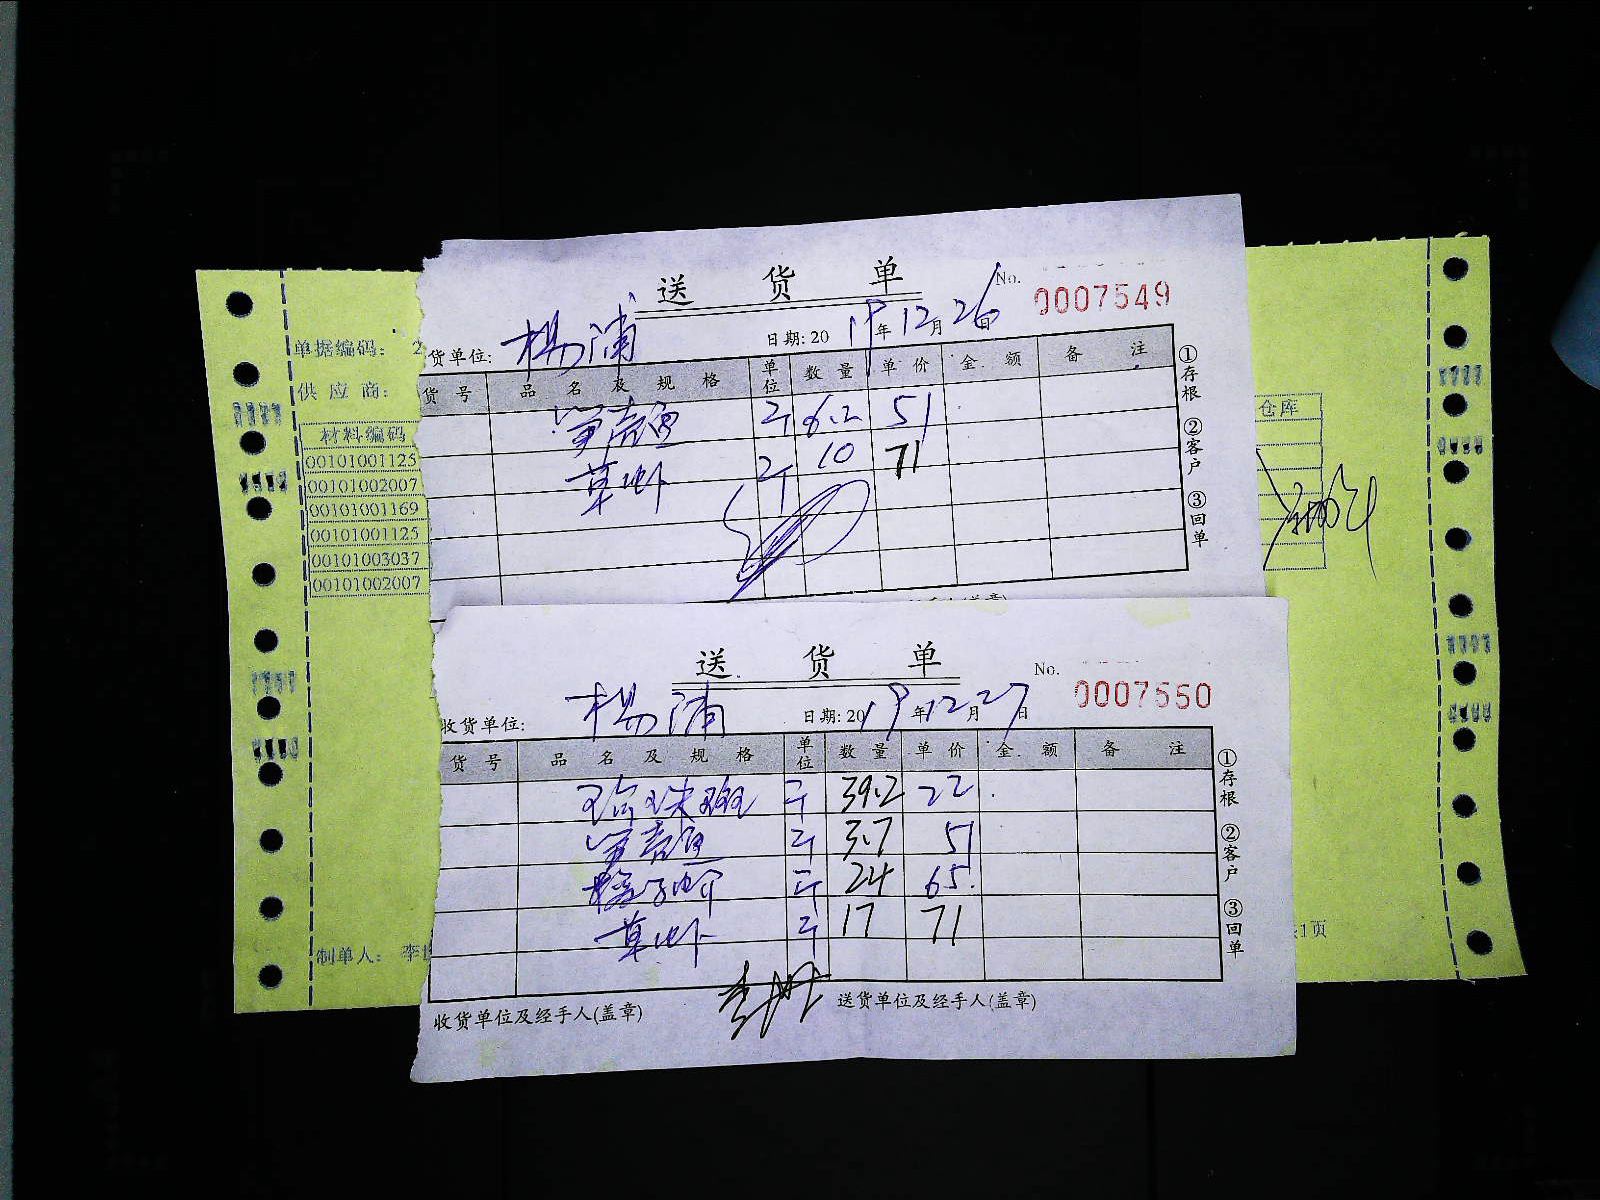 送 货 单
No. 0007549
货单位: 杨浦 日期: 2019年12月26日
货 号 品 名 及 规 格 单位 数 量 单 价 金 额 备 注
笋壳鱼 斤 6.2 51
草虾 斤 10 71
①存根 ②客户 ③回单
送 货 单
No. 0007550
收货单位: 杨浦 日期: 2019年12月27日
货 号 品 名 及 规 格 单位 数 量 单 价 金 额 备 注
珍珠斑 斤 39.2 22
笋壳鱼 斤 3.7 51
斤 24 65
草虾 斤 17 71
①存根 ②客户 ③回单
收货单位及经手人(盖章) 送货单位及经手人(盖章)
单据编码: 2
供 应 商:
材料编码
00101001125
00101002007
00101001169
00101001125
00101003037
00101002007
仓库
制单人: 李
1页